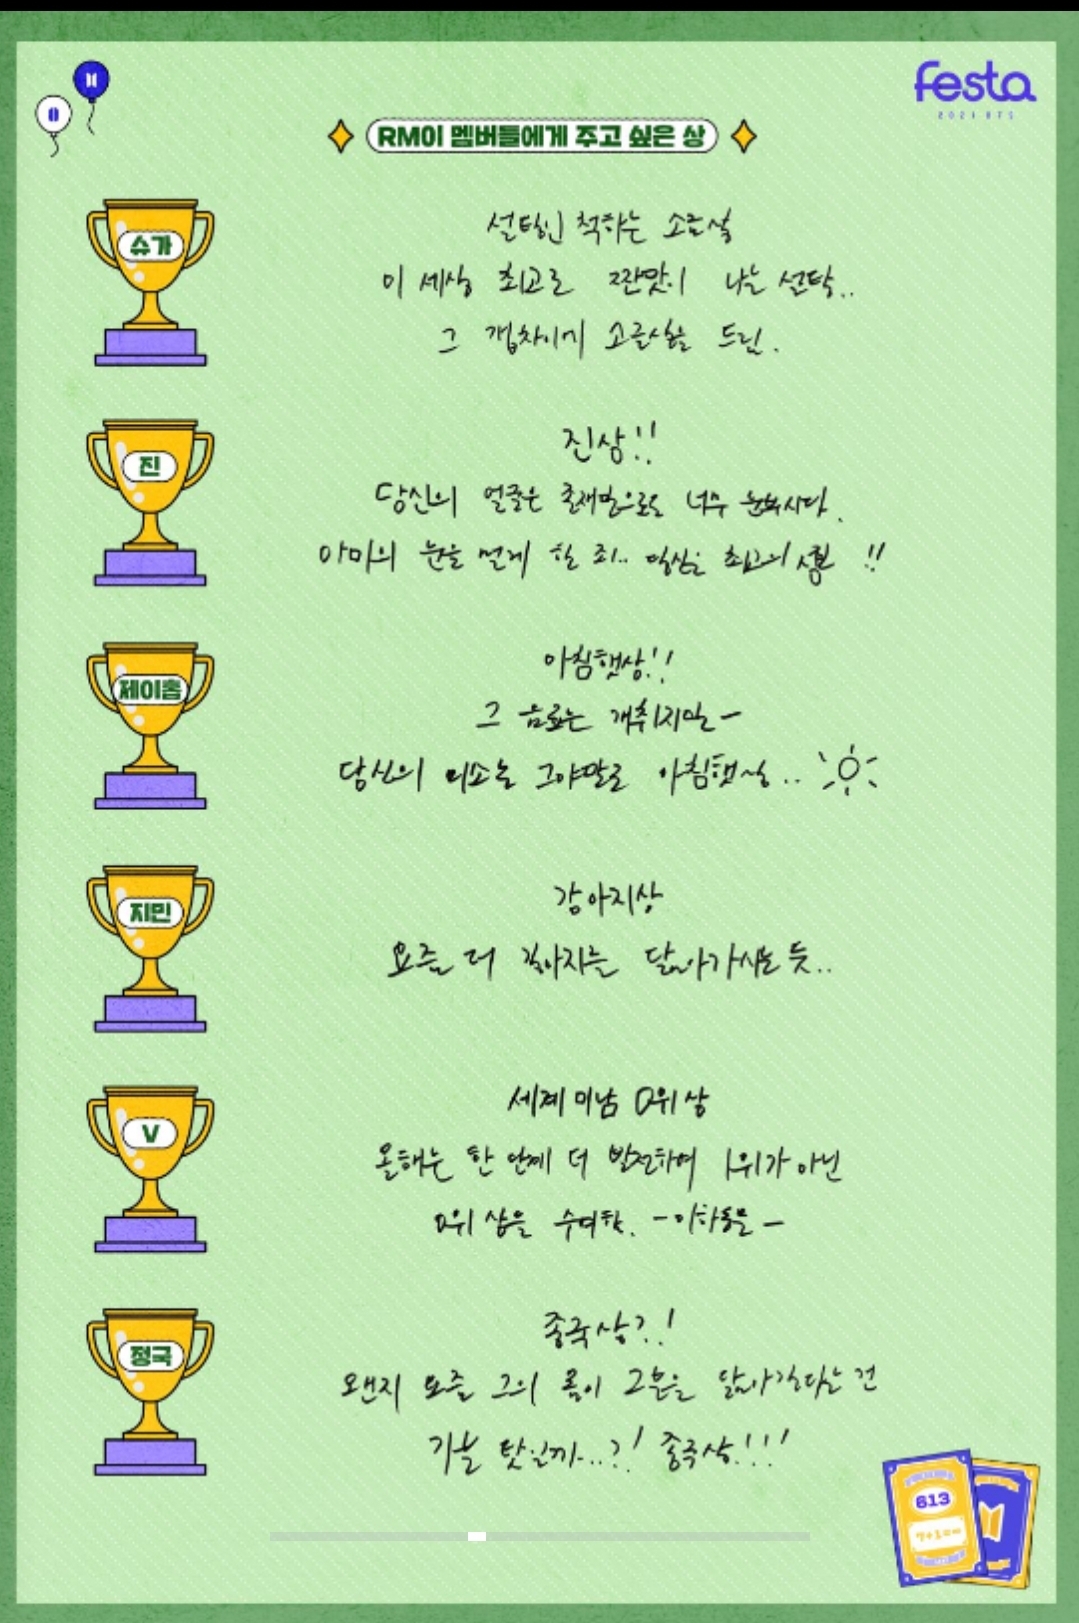 festa
2021 BTS
RM이 멤버들에게 주고 싶은 상
슈가
설탕인 척하는 소금상
이 세상 최고로 짠맛이 나는 설탕..
그 갭차이에 소금상을 드림.
진
진상!!
당신의 얼굴은 존재만으로도 너무 눈부시다.
아미의 눈을 멀게 한 죄.. 당신은 최고의 !!
제이홉
아침햇상!!
그 음료는 개취지만-
당신의 미소는 그야말로 아침햇살..
지민
감아지상
요즘 더 강아지를 닮아가시는 듯..
V
세계 미남 0위 상
올해는 한 단계 더 발전하여 1위가 아닌
0위 상을 수여함. -이하동문-
정국
종국상?!
왠지 요즘 그의 몸이 그분을 닮아간다는 건
기분 탓일까...?! 종국상!!!
613